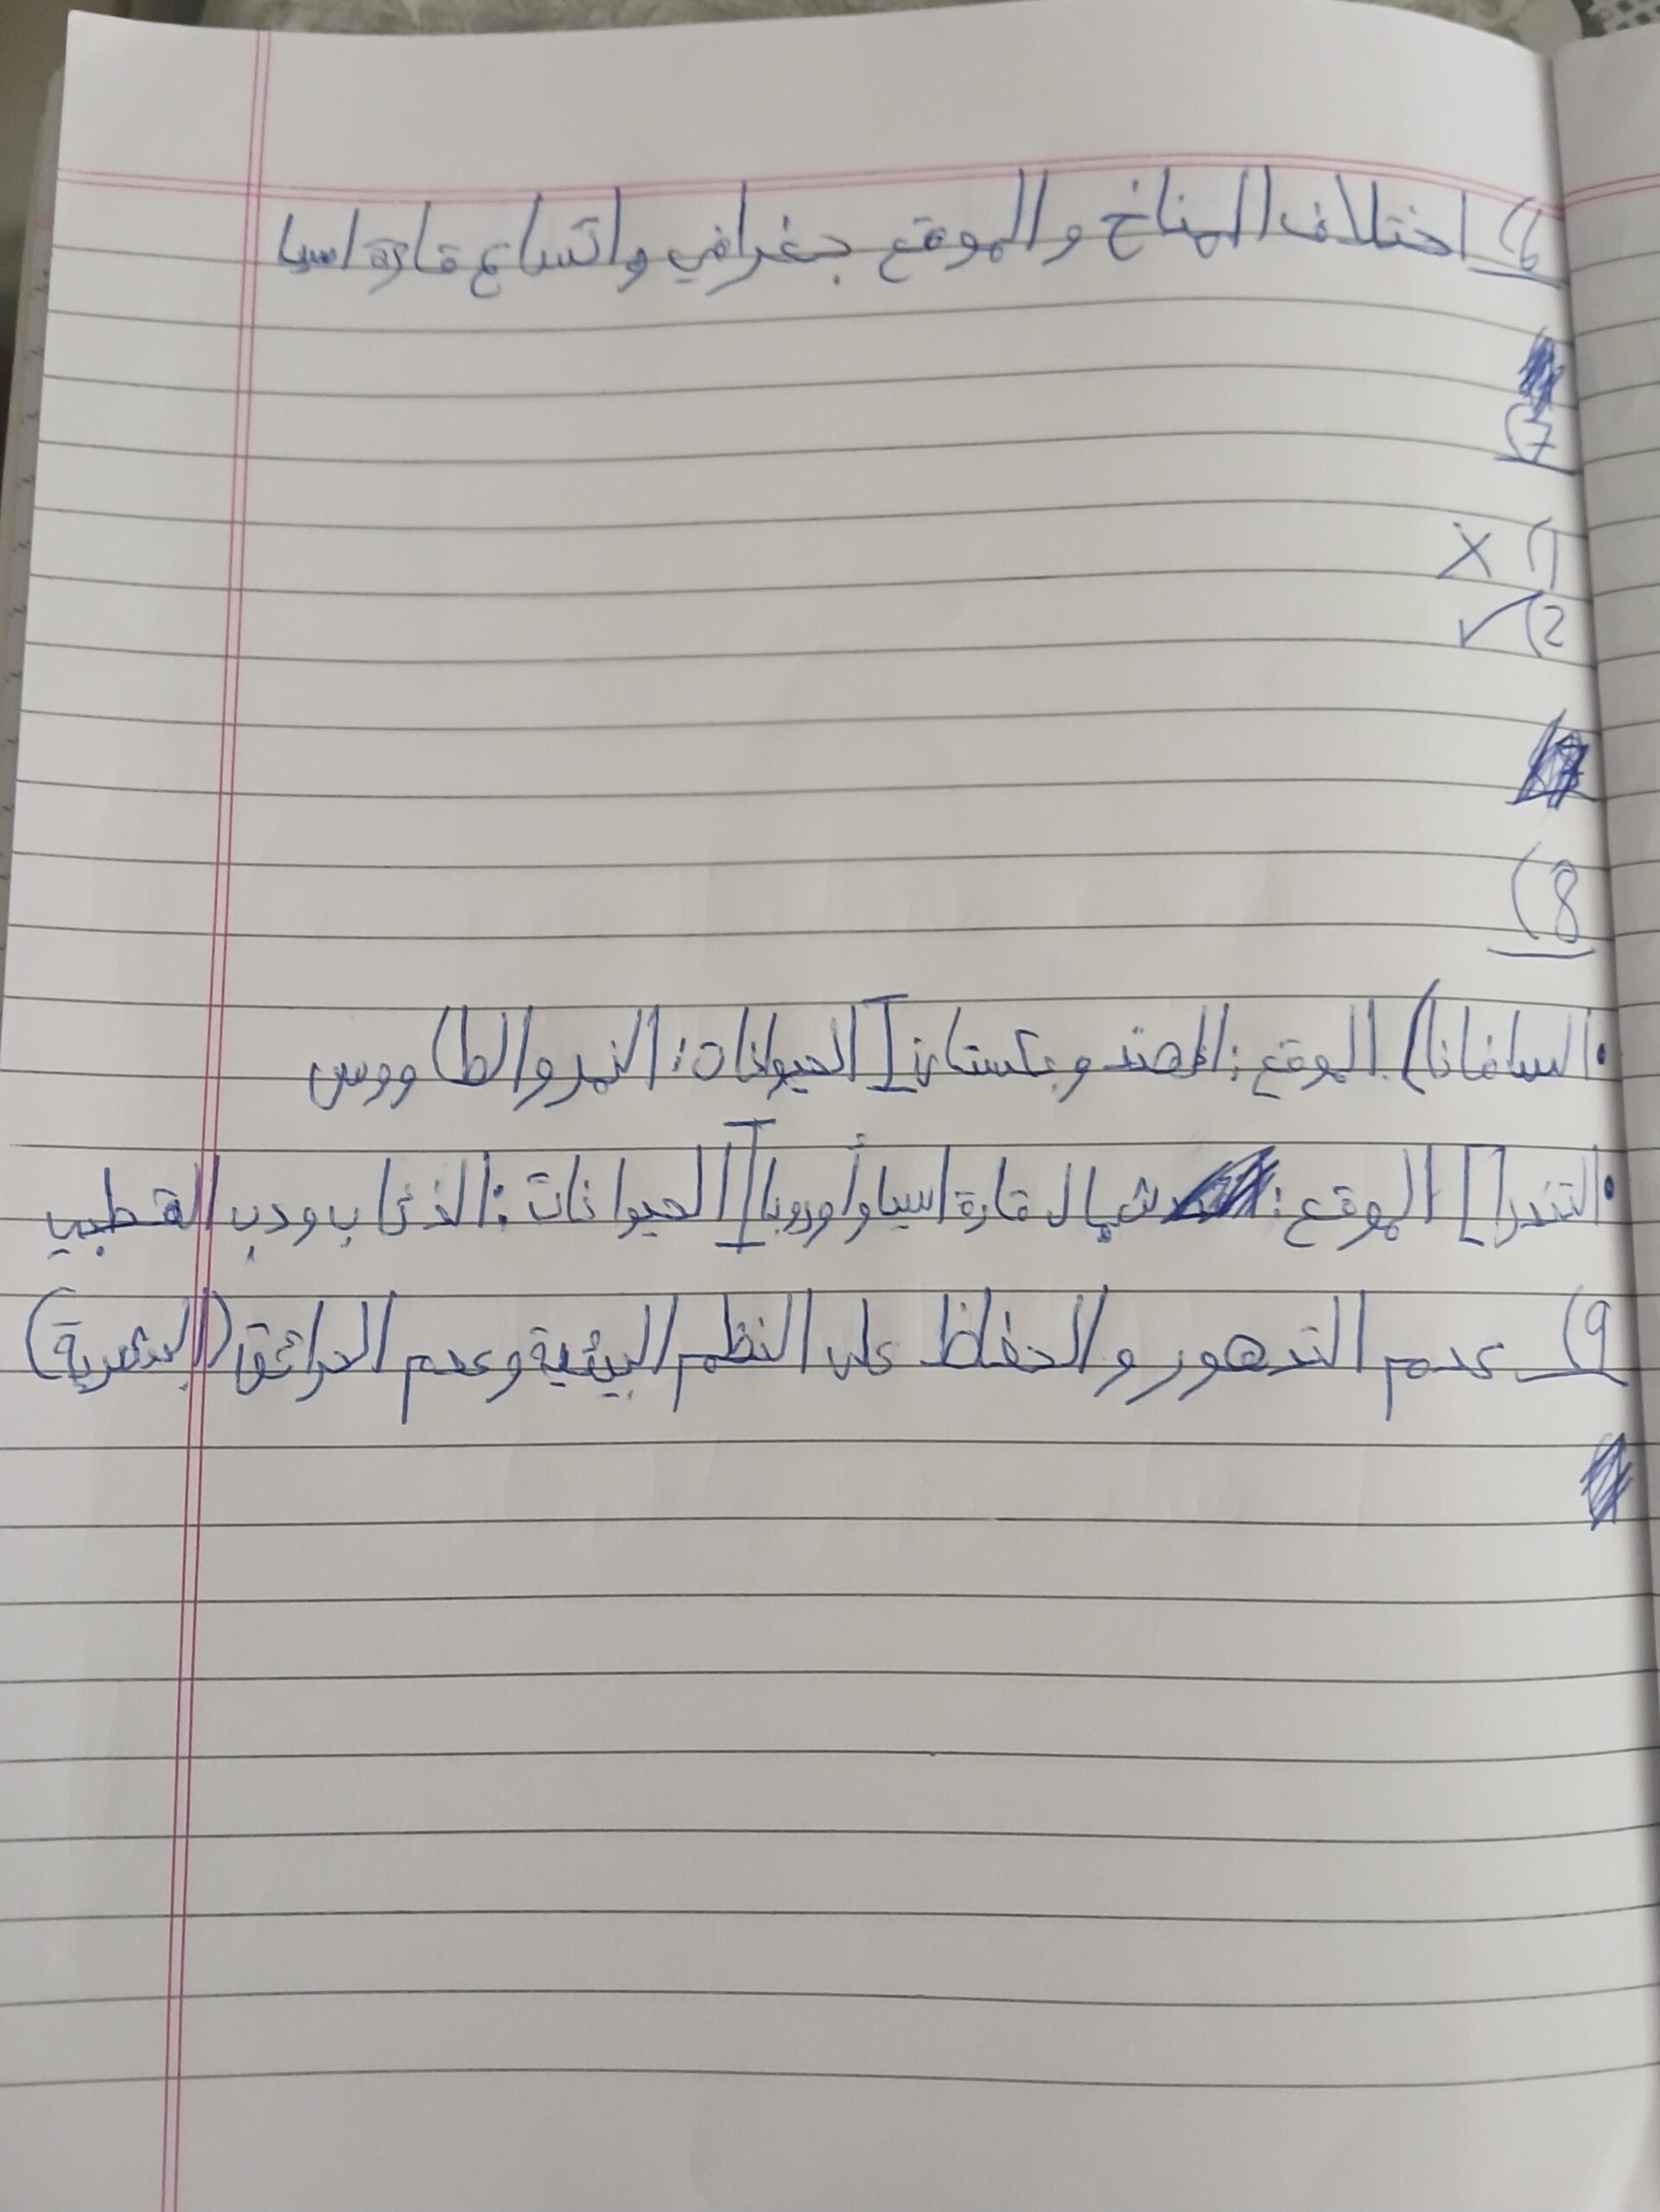 6) اختلاف المناخ والموقع جغرافي واتساع قارة اسيا
7)
1) ×
2) ✓
8)
•السافانا) الموقع: الهند وبكستان] الحيوانات: النمر والطاووس
•التندرا] الموقع: شمال قارة اسيا وأوروبا] الحيوانات: الذئاب ودب القطبي
9) عدم التدهور والحفاظ على النظم البيئية وعدم الحرائق (البشرية)